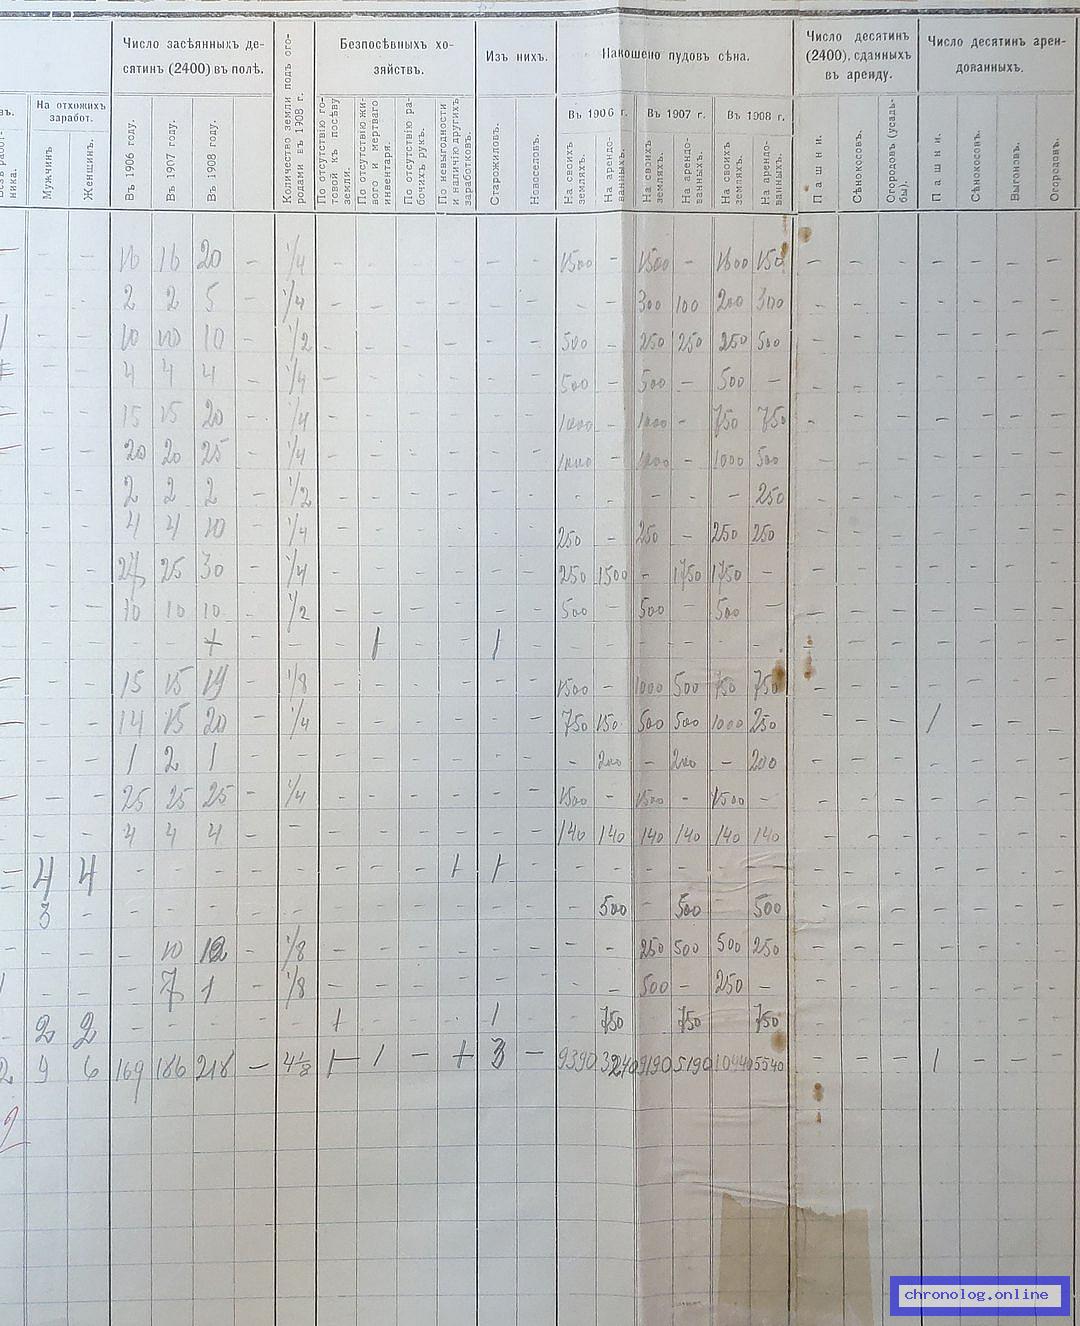 Число засѣянныхъ де-
сятинъ (2400) въ полѣ.
Количество земли подъ ого-
родами въ 1908 г.
Безпосѣвныхъ хо-
зяйствъ.
Изъ нихъ.
Накошено пудовъ сѣна.
Число десятинъ
(2400), сданныхъ
въ аренду.
Число десятинъ арен-
дованныхъ.
На отхожихъ
заработ.
Мужчинъ
Женщинъ.
Въ 1906 году.
Въ 1907 году.
Въ 1908 году.
По отсутствію го-
товой къ посѣву
земли.
По отсутствію жи-
вого и мертваго
инвентаря.
По отсутствію ра-
бочихъ рукъ.
По невыгодности
и наличію другихъ
заработковъ.
Старожиловъ.
Новоселовъ.
Въ 1906 г.
Въ 1907 г.
Въ 1908 г.
На своихъ
земляхъ.
На арендо-
ванныхъ.
На своихъ
земляхъ.
На арендо-
ванныхъ.
На своихъ
земляхъ.
На арендо-
ванныхъ.
Пашни.
Сѣнокосовъ.
Огородовъ (усадь-
бы).
Пашни.
Сѣнокосовъ.
Выгоновъ.
Огородовъ.
16 16 20 - 1/4 - - - - - - 1500 - 1500 - 1600 150 - - - - - - -
2 2 5 - 1/4 - - - - - - - - 300 100 200 300 - - - - - - -
10 10 10 - 1/2 - - - - - - 500 - 250 250 250 500 - - - - - - -
4 4 4 - 1/4 - - - - - - 500 - 500 - 500 - - - - - - - -
15 15 20 - 1/4 - - - - - - 1000 - 1000 - 750 750 - - - - - - -
20 20 25 - 1/4 - - - - - - 1000 - 1000 - 1000 500 - - - - - - -
2 2 2 - 1/2 - - - - - - - - - - - 250 - - - - - - -
4 4 10 - 1/4 - - - - - - 250 - 250 - 250 250 - - - - - - -
27 25 30 - 1/4 - - - - - - 250 1500 - 1750 1750 - - - - - - - -
10 10 10 - 1/2 - - - - - - 500 - 500 - 500 - - - - - - - -
+ - - - 1 - - 1 - - - - - - - - - - - - - -
15 15 19 - 1/8 - - - - - - 1500 - 1000 500 750 750 - - - - - - -
14 15 20 - 1/4 - - - - - - 750 150 500 500 1000 250 - - - 1 - - -
1 2 1 - - - - - - - - - 200 - 200 - 200 - - - - - - -
25 25 25 - 1/4 - - - - - - 1500 - 1500 - 1500 - - - - - - - -
4 4 4 - - - - - - - - 140 140 140 140 140 140 - - - - - - -
4 4 - - - - - - - - 1 1 - - - - - - - - - - - - - -
3 - - - - - - - - - - - - - 500 - 500 - 500 - - - - - - -
- 10 12 - 1/8 - - - - - - - - 250 500 500 250 - - - - - - -
7 1 - 1/8 - - - - - - - - 500 - 250 - - - - - - - -
2 2 - - - - - 1 - - - 1 - - 750 - 750 - 750 - - - - - - -
9 6 169 186 218 - 4 1/8 1 1 - 1 3 - 9390 3240 9190 5190 10940 5540 - - - 1 - - -
chronolog.online